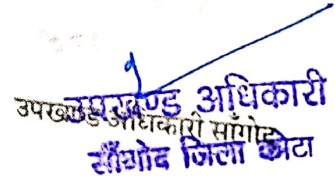 उपखण्ड अधिकारी
उपखण्ड अधिकारी सांगोद
साँगोद जिला कोटा